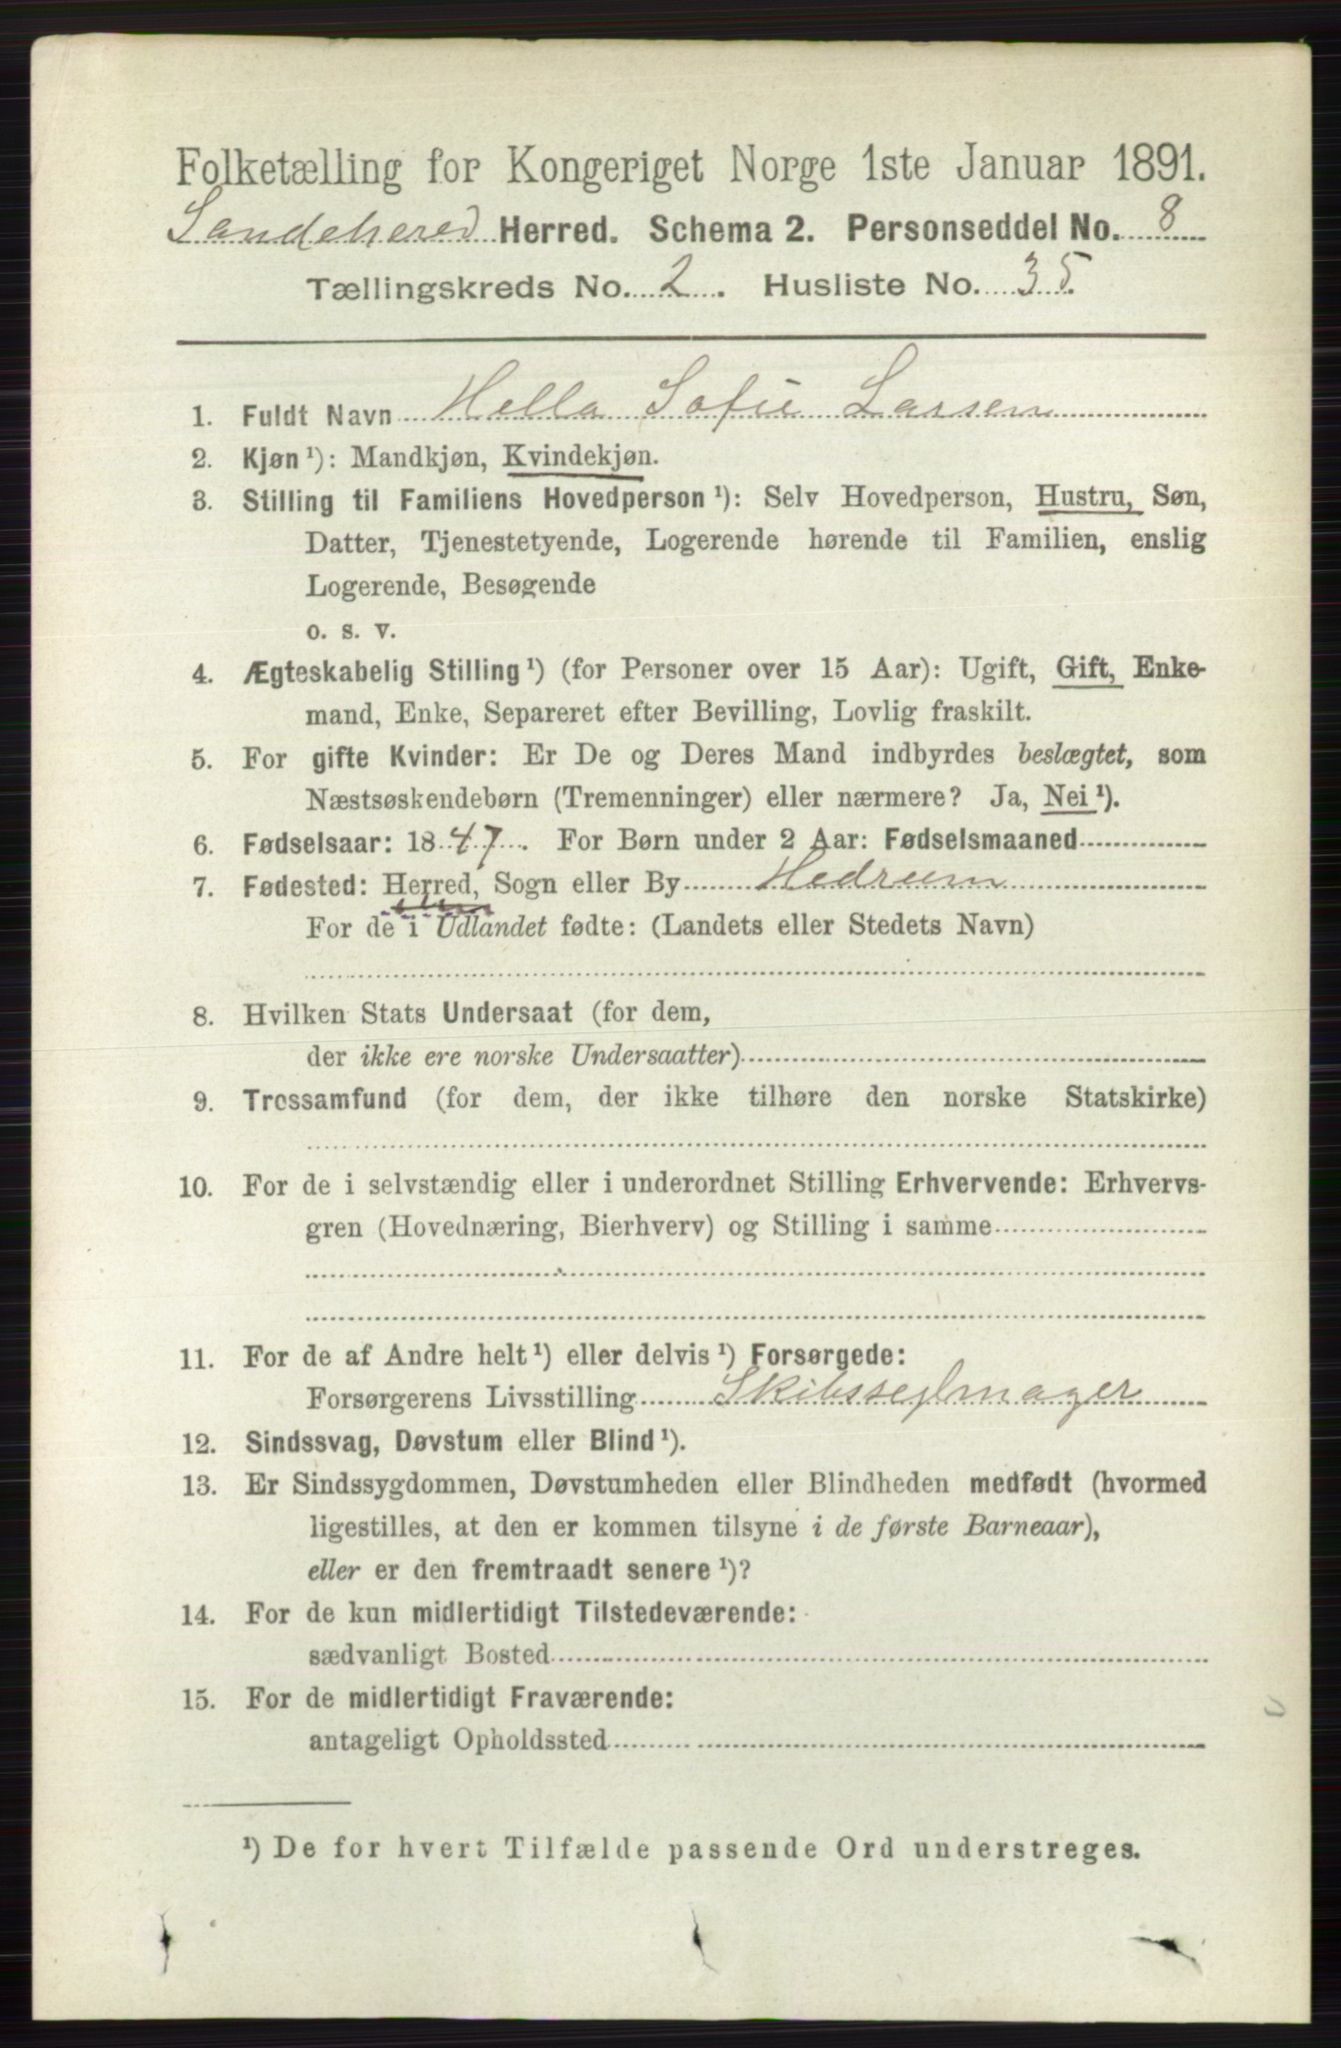 Folketælling for Kongeriget Norge 1ste Januar 1891.
Sandehered Herred. Schema 2. Personseddel No. 8
Tællingskreds No. 2. Husliste No. 35.
1. Fuldt Navn Hella Sofie Larsen
2. Kjøn ¹): Mandkjøn, Kvindekjøn.
3. Stilling til Familiens Hovedperson ¹): Selv Hovedperson, Hustru, Søn,
Datter, Tjenestetyende, Logerende hørende til Familien, enslig
Logerende, Besøgende
o. s. v.
4. Ægteskabelig Stilling ¹) (for Personer over 15 Aar): Ugift, Gift, Enke-
mand, Enke, Separeret efter Bevilling, Lovlig fraskilt.
5. For gifte Kvinder: Er De og Deres Mand indbyrdes beslægtet, som
Næstsøskendebørn (Tremenninger) eller nærmere? Ja, Nei ¹).
6. Fødselsaar: 1847. For Børn under 2 Aar: Fødselsmaaned
7. Fødested: Herred, Sogn eller By Hedrum
For de i Udlandet fødte: (Landets eller Stedets Navn)
8. Hvilken Stats Undersaat (for dem,
der ikke ere norske Undersaatter)
9. Trossamfund (for dem, der ikke tilhøre den norske Statskirke)
10. For de i selvstændig eller i underordnet Stilling Erhvervende: Erhvervs-
gren (Hovednæring, Bierhverv) og Stilling i samme
11. For de af Andre helt ¹) eller delvis ¹) Forsørgede:
Forsørgerens Livsstilling Skibsseglmager
12. Sindssvag, Døvstum eller Blind ¹).
13. Er Sindssygdommen, Døvstumheden eller Blindheden medfødt (hvormed
ligestilles, at den er kommen tilsyne i de første Barneaar),
eller er den fremtraadt senere ¹)?
14. For de kun midlertidigt Tilstedeværende:
sædvanligt Bosted
15. For de midlertidigt Fraværende:
antageligt Opholdssted
¹) De for hvert Tilfælde passende Ord understreges.